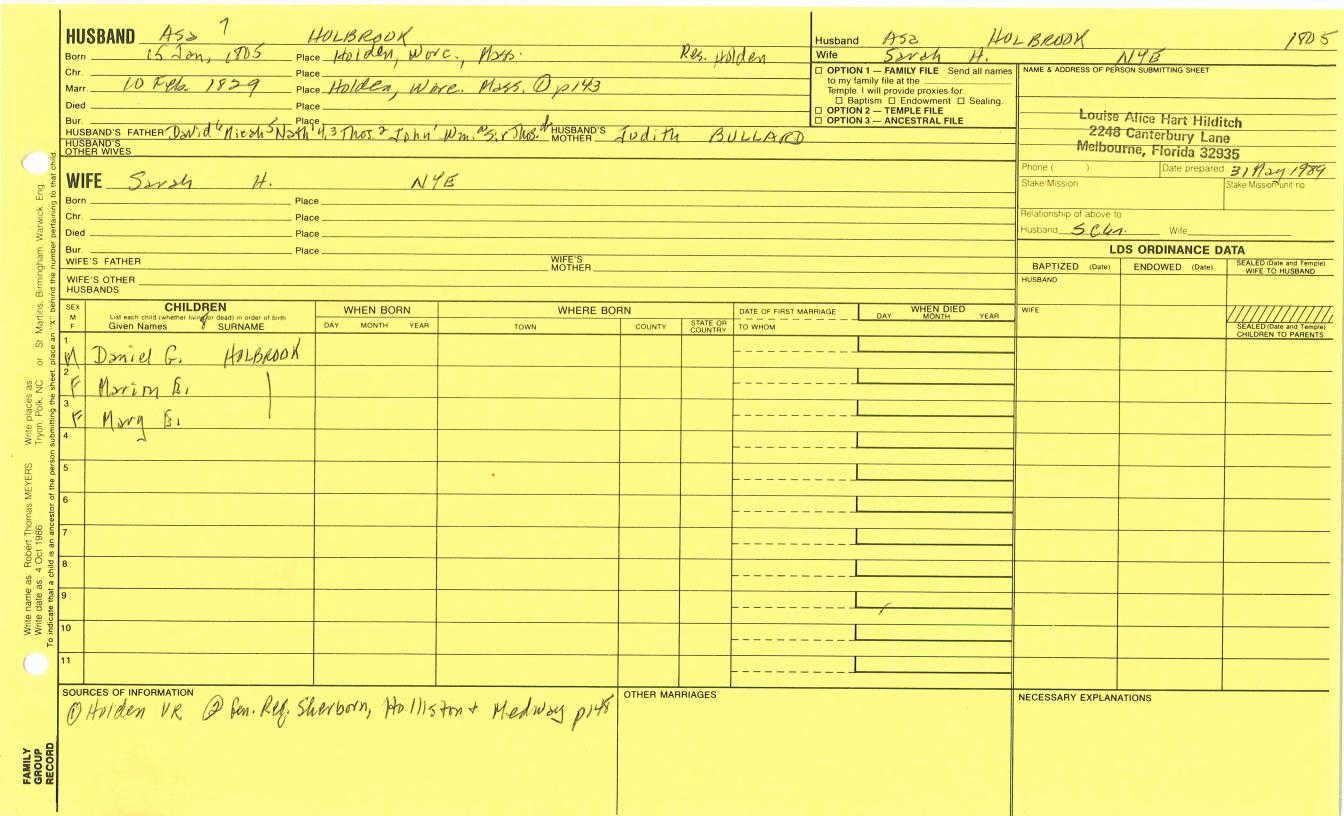 HUSBAND Asa 7 HOLBROOK
Born 15 Jan, 1805 Place Holden, Worc, Mass. Res. Holden
Chr. Place
Marr. 10 Feb. 1829 Place Holden, Worc. Mass. ① p143
Died Place
Bur. Place
HUSBAND'S FATHER David HUSBAND'S MOTHER Judith BULLARD
HUSBAND'S OTHER WIVES
WIFE Sarah H. NYE
Born Place
Chr. Place
Died Place
Bur. Place
WIFE'S FATHER WIFE'S MOTHER
WIFE'S OTHER HUSBANDS
Husband Asa HOLBROOK 1805
Wife Sarah H. NYE
☐ OPTION 1 — FAMILY FILE Send all names
to my family file at the
Temple. I will provide proxies for:
☐ Baptism ☐ Endowment ☐ Sealing.
☐ OPTION 2 — TEMPLE FILE
☐ OPTION 3 — ANCESTRAL FILE
NAME & ADDRESS OF PERSON SUBMITTING SHEET
Louise Alice Hart Hilditch
2248 Canterbury Lane
Melbourne, Florida 32935
Phone ( ) Date prepared 31 May 1989
Stake/Mission Stake/Mission unit no.
Relationship of above to
Husband Wife
LDS ORDINANCE DATA
BAPTIZED (Date) ENDOWED (Date) SEALED (Date and Temple) WIFE TO HUSBAND
HUSBAND
WIFE
SEALED (Date and Temple) CHILDREN TO PARENTS
SEX M F
CHILDREN
List each child (whether living or dead) in order of birth
Given Names 8 SURNAME
WHEN BORN
DAY MONTH YEAR
WHERE BORN
TOWN COUNTY STATE OR COUNTRY
DATE OF FIRST MARRIAGE
TO WHOM
WHEN DIED
DAY MONTH YEAR
1 M Daniel G. HOLBROOK
2 F E.
3 F Mary E.
4
5
6
7
8
9
10
11
SOURCES OF INFORMATION
① Holden VR ② Gen. Reg. Sherborn, Holliston + Medway
OTHER MARRIAGES
NECESSARY EXPLANATIONS
FAMILY GROUP RECORD
Write name as: Robert Thomas MEYERS Write places as: Tryon, Polk, NC or St. Martins, Birmingham, Warwick, Eng.
Write date as: 4 Oct 1986
To indicate that a child is an ancestor of the person submitting the sheet, place an "X" behind the number pertaining to that child.